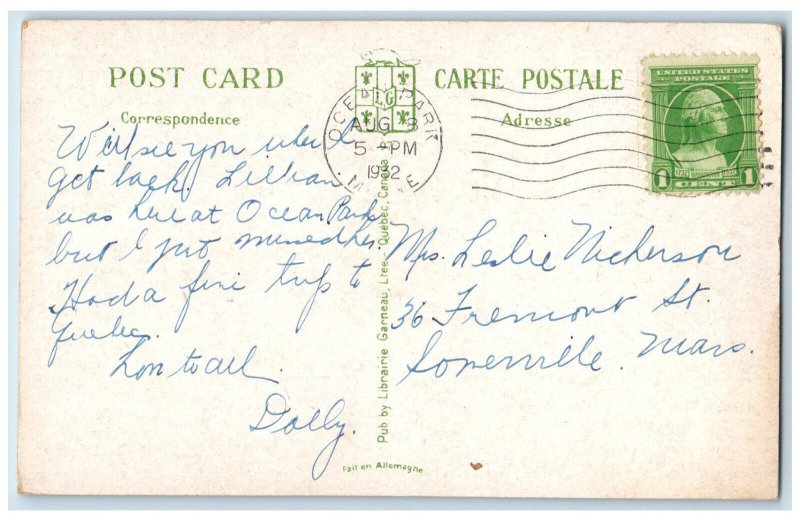 POST CARD
CARTE POSTALE
Correspondence
Adresse
L G
OCEAN PARK
AUG 8
5 - PM
1932
MAINE
UNITED STATES POSTAGE
1 CENT 1
Will see you when I
get back. Lillian
was here at Ocean Park
but I just missed her.
Had a fine trip to
Quebec.
Love to all.
Dolly.
Mrs. Leslie Nickerson
36 Fremont St.
Somerville. Mass.
Pub by Librairie Garneau, Ltee. - Quebec, Canada
Fait en Allemagne